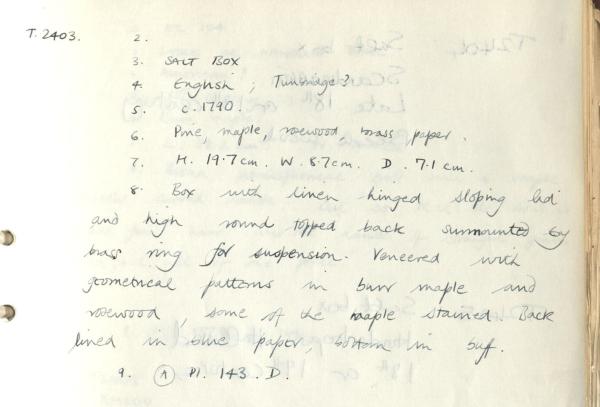 T.2403. 2.
3. SALT BOX
4. English ; Tunbridge?
5. c.1790.
6. Pine, maple, rosewood, brass, paper.
7. H. 19.7cm. W. 8.7cm. D. 7.1 cm.
8. Box with linen hinged sloping lid
and high round topped back surmounted by
brass ring for suspension. Veneered with
geometrical patterns in burr maple and
rosewood, some of the maple stained. Back
lined in blue paper, bottom in buff.
9. A Pl. 143. D.